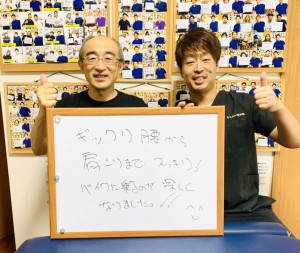 ギックリ腰から
肩こりまでスッキリ!
バイクに乗るのが楽しく
なりました!!
^^